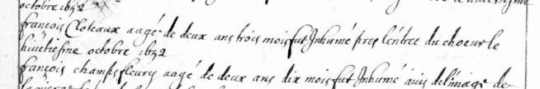 octobre 1652
françois Cloteaux aagé de deux ans trois mois fut Inhumé pres lentree du choeur le
huictiesme octobre 1652
françois champsfleury aagé de deux ans dix mois fut Inhumé auis delimage de